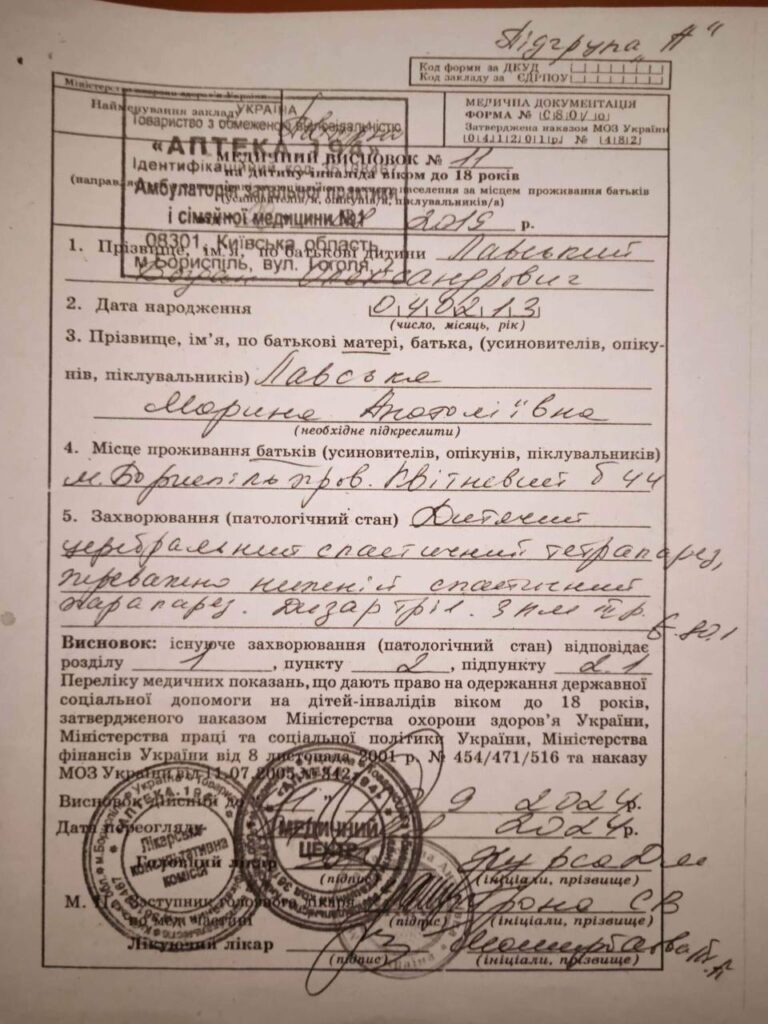 Підгрупа „А“
Код форми за ДКУД
Код закладу за ЄДРПОУ
Міністерство охорони здоров'я України
Найменування закладу
УКРАЇНА
Товариство з обмеженою відповідальністю
«АПТЕКА 194»
Ідентифікаційний код
Амбулаторія загальної практики
і сімейної медицини №1
08301, Київська область,
м.Бориспіль, вул. Гоголя,
МЕДИЧНА ДОКУМЕНТАЦІЯ
ФОРМА № 080/о
Затверджена наказом МОЗ України
04.12.01р № 482
МЕДИЧНИЙ ВИСНОВОК № 11
на дитину-інваліда віком до 18 років
населення за місцем проживання батьків
(усиновителів, опікунів, піклувальників/а)
2019 р.
1. Прізвище, ім'я, по батькові дитини Лавський
Олександрович
2. Дата народження 040213
(число, місяць, рік)
3. Прізвище, ім'я, по батькові матері, батька, (усиновителів, опіку-
нів, піклувальників) Лавська
Марина Анатоліївна
(необхідне підкреслити)
4. Місце проживання батьків (усиновителів, опікунів, піклувальників)
м. Бориспіль пров. Квітневий 44
5. Захворювання (патологічний стан) Дитячий
церебральний спастичний тетрапарез,
переважно нижній спастичний
парапарез. Дизартрія.
G-80.1
Висновок: існуюче захворювання (патологічний стан) відповідає
розділу 1, пункту 2, підпункту 2.1
Переліку медичних показань, що дають право на одержання державної
соціальної допомоги на дітей-інвалідів віком до 18 років,
затвердженого наказом Міністерства охорони здоров'я України,
Міністерства праці та соціальної політики України, Міністерства
фінансів України від 8 листопада 2001 р. № 454/471/516 та наказу
МОЗ України від 11.07.2005 № 342
Висновок дійсний до 11 9 2024р.
Дата переогляду 2024р.
Головний лікар
(підпис) (ініціали, прізвище)
М. П. Заступник головного лікаря
по мед частині (підпис) (ініціали, прізвище)
Лікуючий лікар
(підпис) (ініціали, прізвище)
АПТЕКА 194
Лікарсько-
консультативна
комісія
МЕДИЧНИЙ
ЦЕНТР